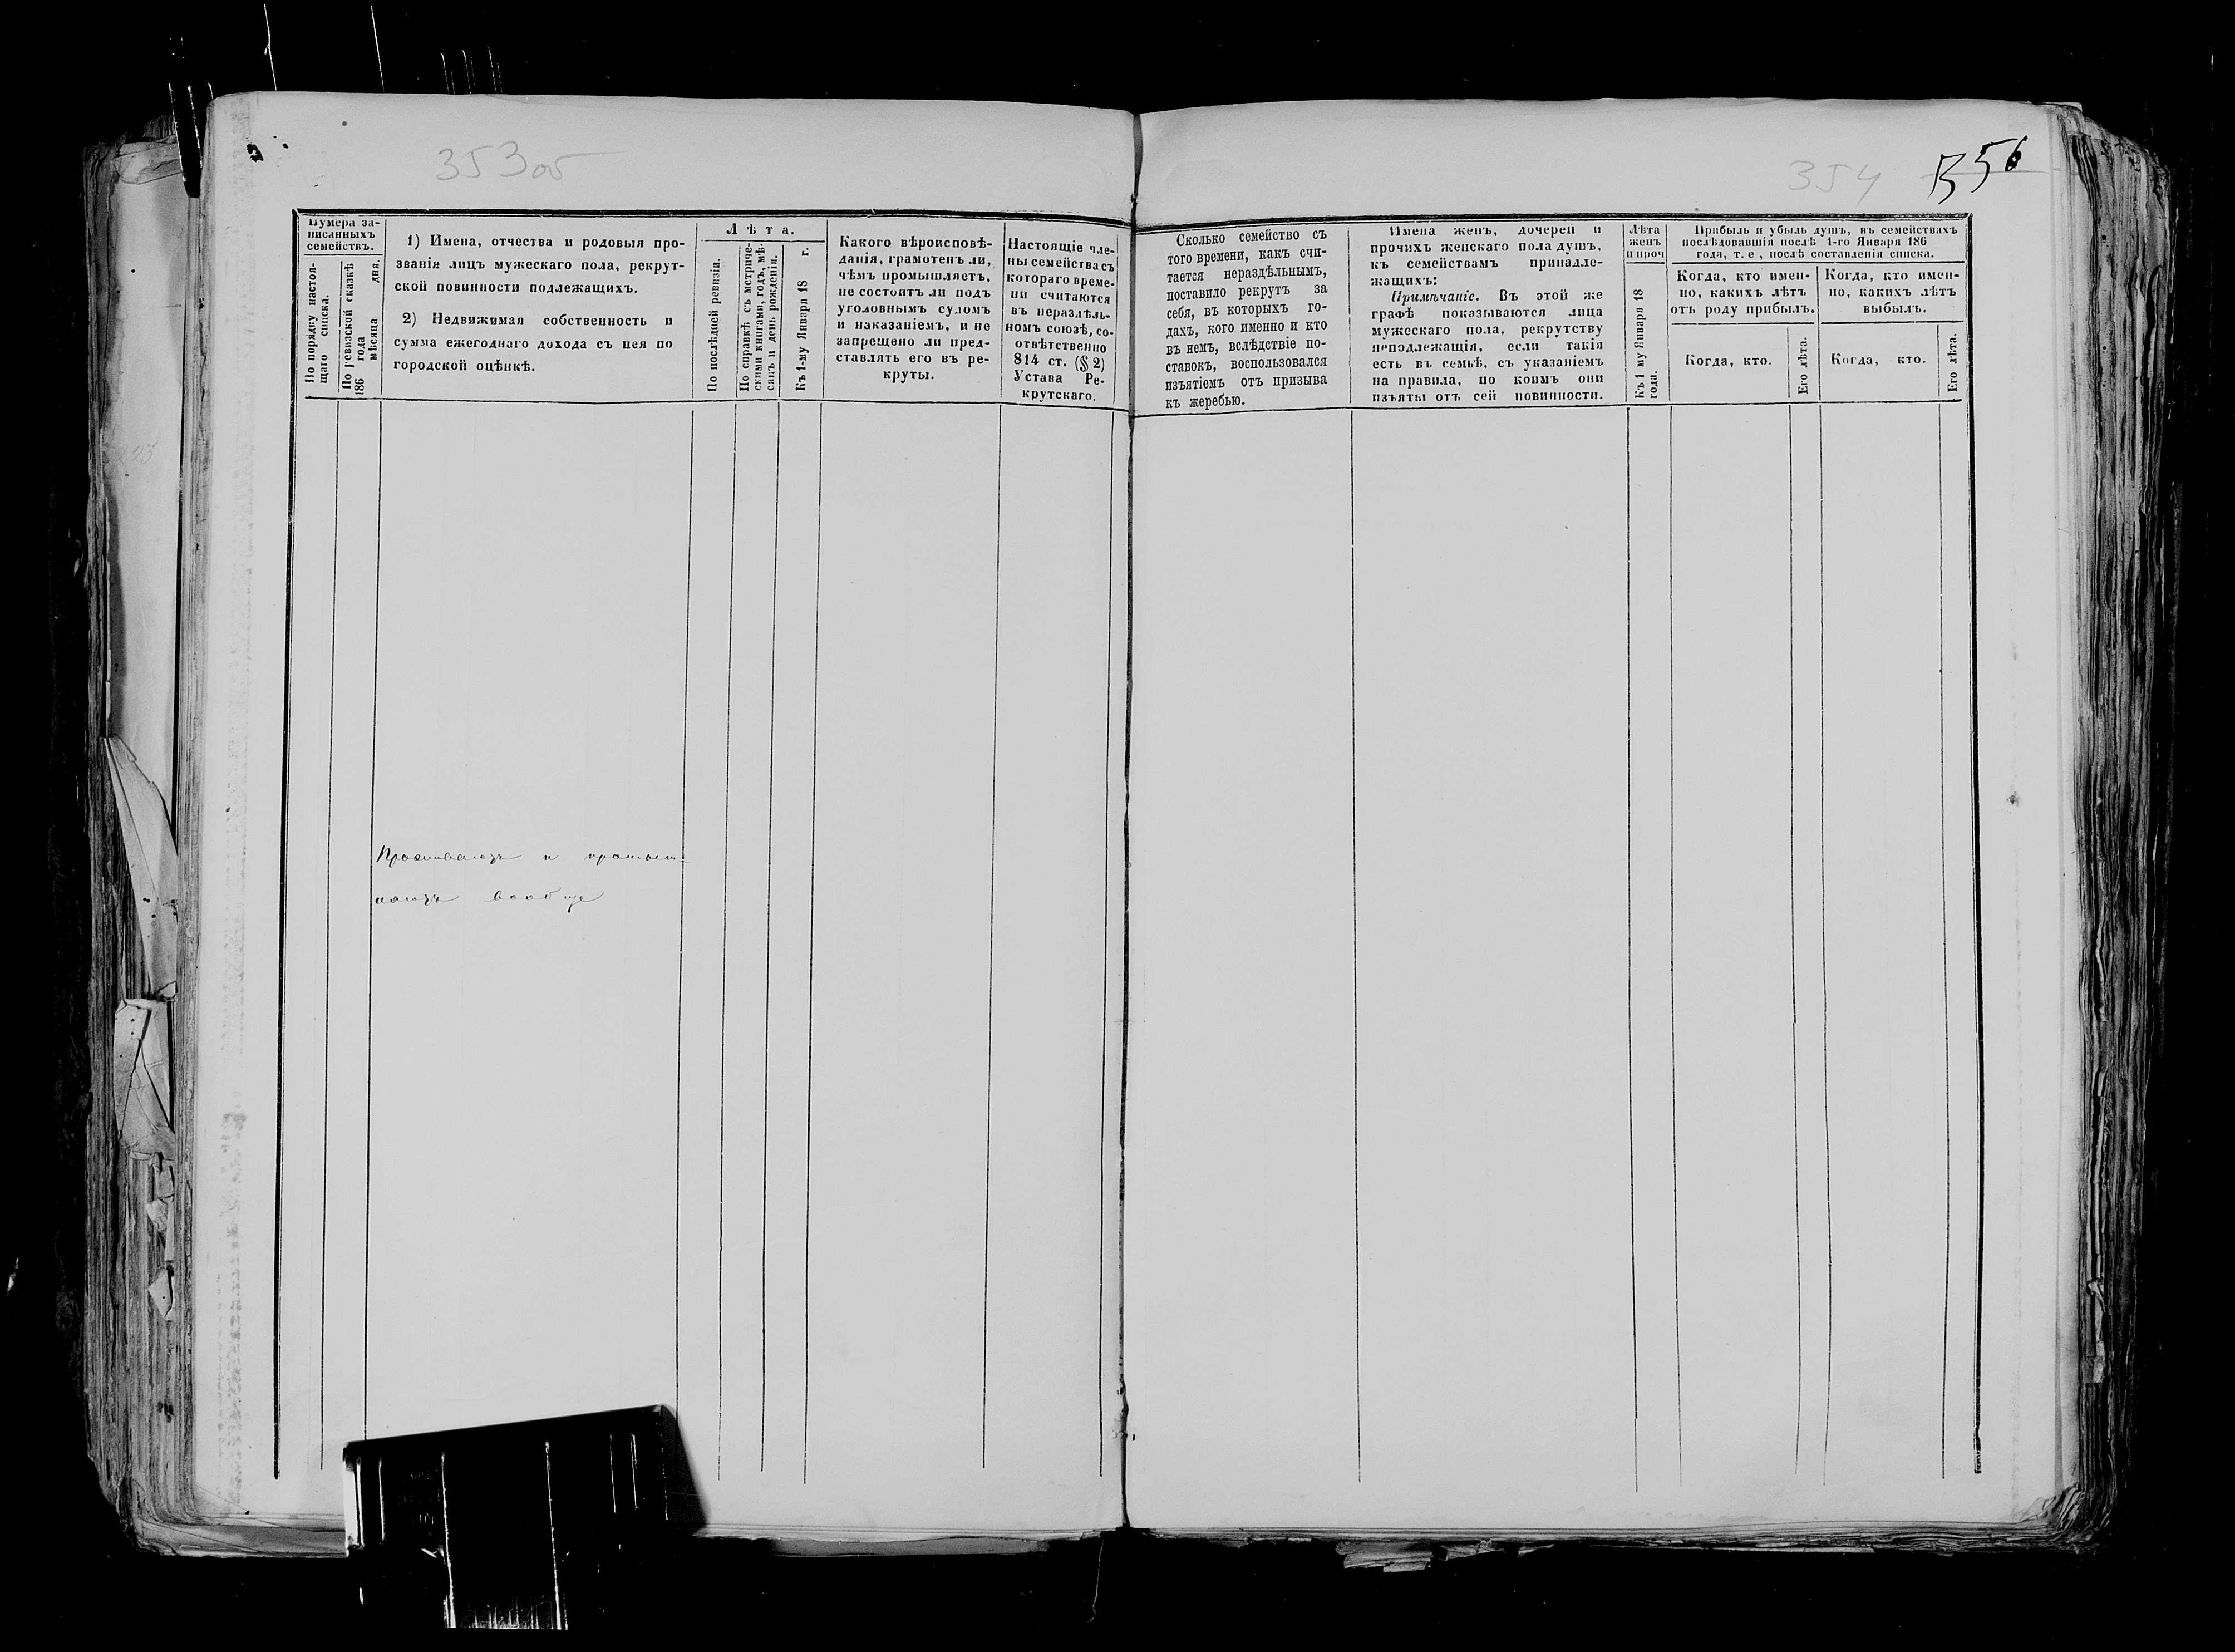 353об
354
356
Нумера за-
писанныхъ
семействъ.
По порядку настоя-
щаго списка.
По ревизской сказкѣ
186 года мѣсяца дня.
1) Имена, отчества и родовыя про-
званія лицъ мужескаго пола, рекрут-
ской повинности подлежащихъ.
2) Недвижимая собственность и
сумма ежегоднаго дохода съ нея по
городской оцѣнкѣ.
Лѣта.
По послѣдней ревизіи.
По справкѣ съ метриче-
скими книгами, годъ, мѣ-
сяцъ и день рожденія.
Къ 1-му Января 18 г.
Какого вѣроисповѣ-
данія, грамотенъ ли,
чѣмъ промышляетъ,
не состоитъ ли подъ
уголовнымъ судомъ
и наказаніемъ, и не
запрещено ли пред-
ставлять его въ ре-
круты.
Настоящіе чле-
ны семейства съ
котораго време-
ни считаются
въ нераздѣль-
номъ союзѣ, со-
отвѣтственно
814 ст. (§ 2)
Устава Ре-
крутскаго.
Проживаютъ и промыш-
ляютъ вообще
Сколько семейство съ
того времени, какъ счи-
тается нераздѣльнымъ,
поставило рекрутъ за
себя, въ которыхъ го-
дахъ, кого именно и кто
въ немъ, вслѣдствіе по-
ставокъ, воспользовался
изъятіемъ отъ призыва
къ жеребью.
Имена женъ, дочерей и
прочихъ женскаго пола душъ,
къ семействамъ принадле-
жащихъ:
Примѣчаніе. Въ этой же
графѣ показываются лица
мужескаго пола, рекрутству
неподлежащія, если такія
есть въ семьѣ, съ указаніемъ
на правила, по коимъ они
изъяты отъ сей повинности.
Лѣта
женъ
и проч
Къ 1 му Января 18
года.
Прибыль и убыль душъ, въ семействахъ
послѣдовавшія послѣ 1-го Января 186
года, т. е , послѣ составленія списка.
Когда, кто имен-
но, какихъ лѣтъ
отъ роду прибылъ.
Когда, кто.
Его лѣта.
Когда, кто имен-
но, какихъ лѣтъ
выбылъ.
Когда, кто.
Его лѣта.